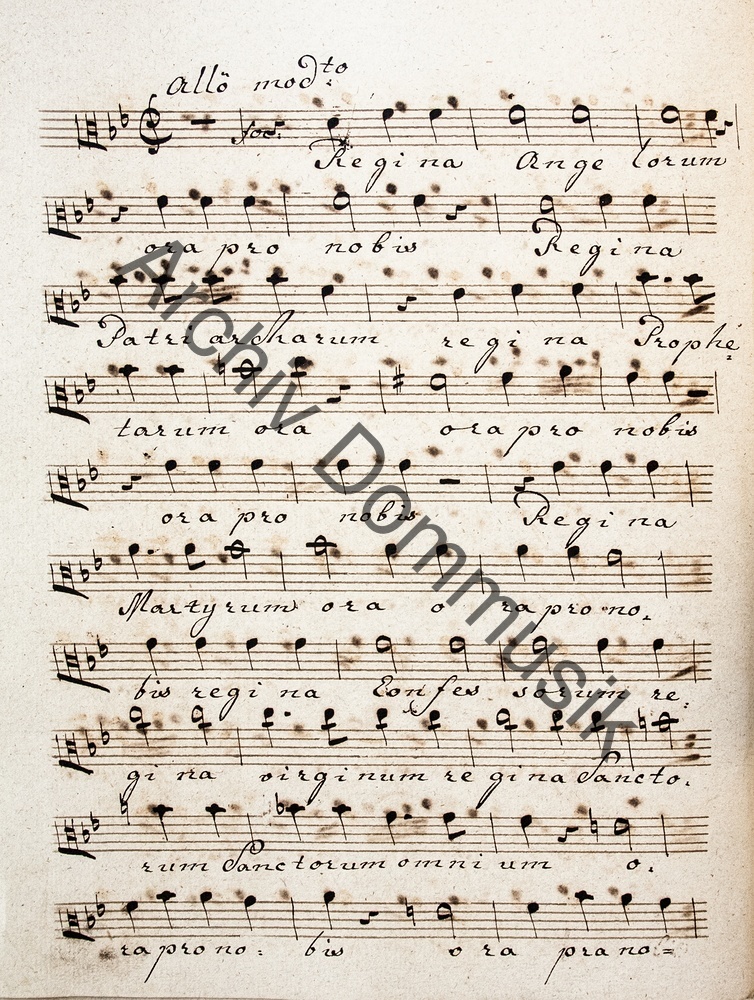 Allō modto
Soc:
Regina Angelorum
ora pro nobis Regina
Patriarcharum regina Prophe=
tarum ora ora pro nobis
ora pro nobis Regina
Martyrum ora o ra pro no.
bis regina Confes sorum re.
gina virginum regina Sancto.
rum Sanctorum omnium o.
ra pro no: bis ora pra no=
Archiv Dommusik